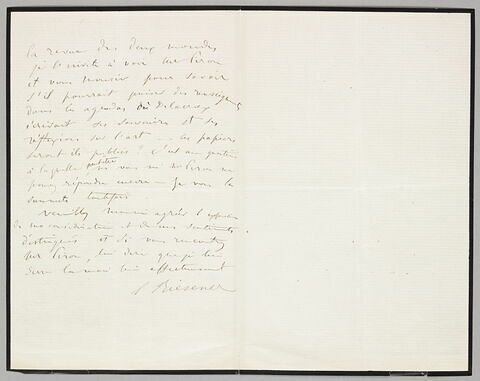 la revue des deux mondes
je l'invite à voir Mr Piron
et vous Monsieur pour savoir
s'il pourrait puiser des renseignements
dans les agendas où Delacroix
écrivait ses souvenirs et ses
réflexions sur l'art — ces papiers
seront ils publiés? C'est une question
à laquelle peut être ni vous ni Mr Piron ne
pouvez répondre encore — Je vous la
soumets toutefois
Veuillez Monsieur agréer l'expression
de ma considération et de mes sentiments
distingués et si vous rencontrez
Mr Piron, lui dire que je lui
serre la main bien affectueusement
L Riesener